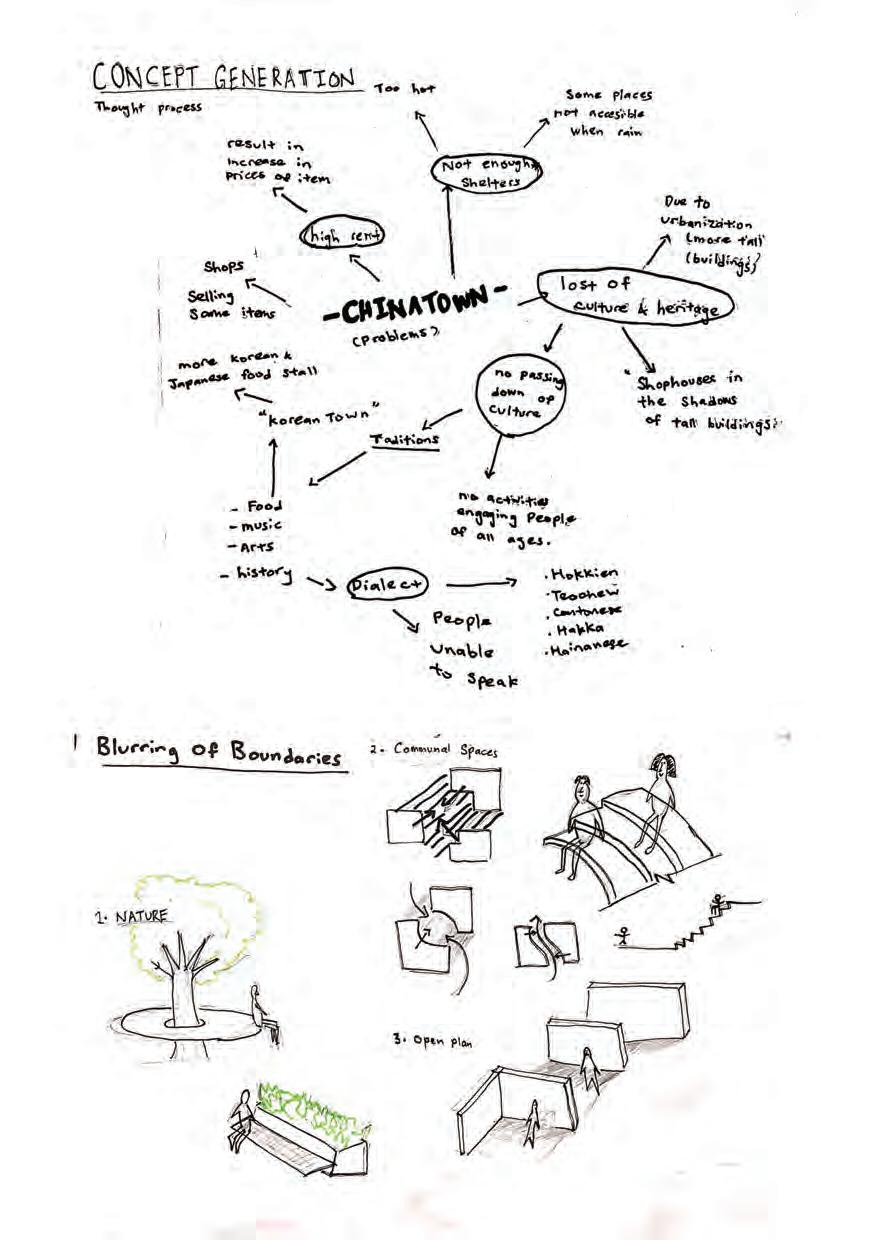 CONCEPT GENERATION
Thought process
Too hot
Some places
not accesible
when rain
result in
increase in
prices of item
Not enough
Shelters
Due to
urbanization
(more tall
(buildings)
high rent
Shops
Selling
Same items
-CHINATOWN-
(Problems)
lost of
culture & heritage
more Korean &
Japanese food stall
"Korean Town"
Taditions
no passing
down of
culture
"Shophouses in
the Shadows
of tall buildings"
- Food
- music
- Arts
- history
no activities
engaging People
of all ages.
Dialect
People
Unable
to Speak
.Hokkien
.Teochew
.Cantonese
.Hakka
.Hainanese
Blurring of Boundaries
2. Communal Spaces
1. NATURE
3. Open Plan